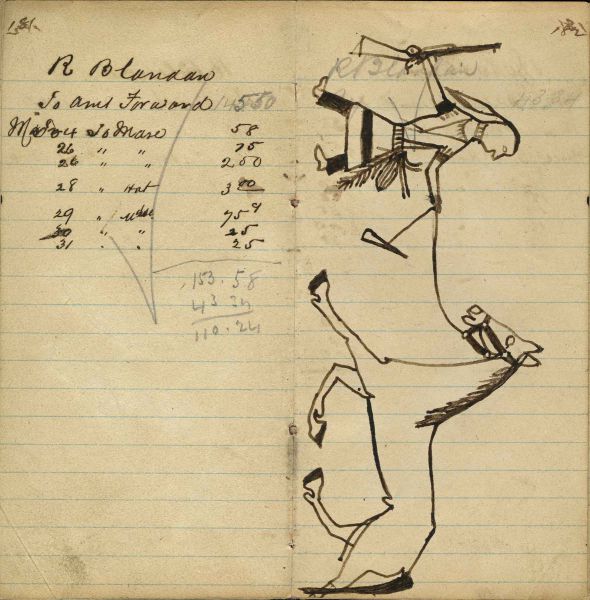 R Blandan
To amt Forward 145 50
To Mase 58
26 " " 75
26 " " 2 50
28 " Hat 3 00
29 " 75
30 " " 25
31 " " 25
153.58
43 34
110.24
R Blandan
43 34